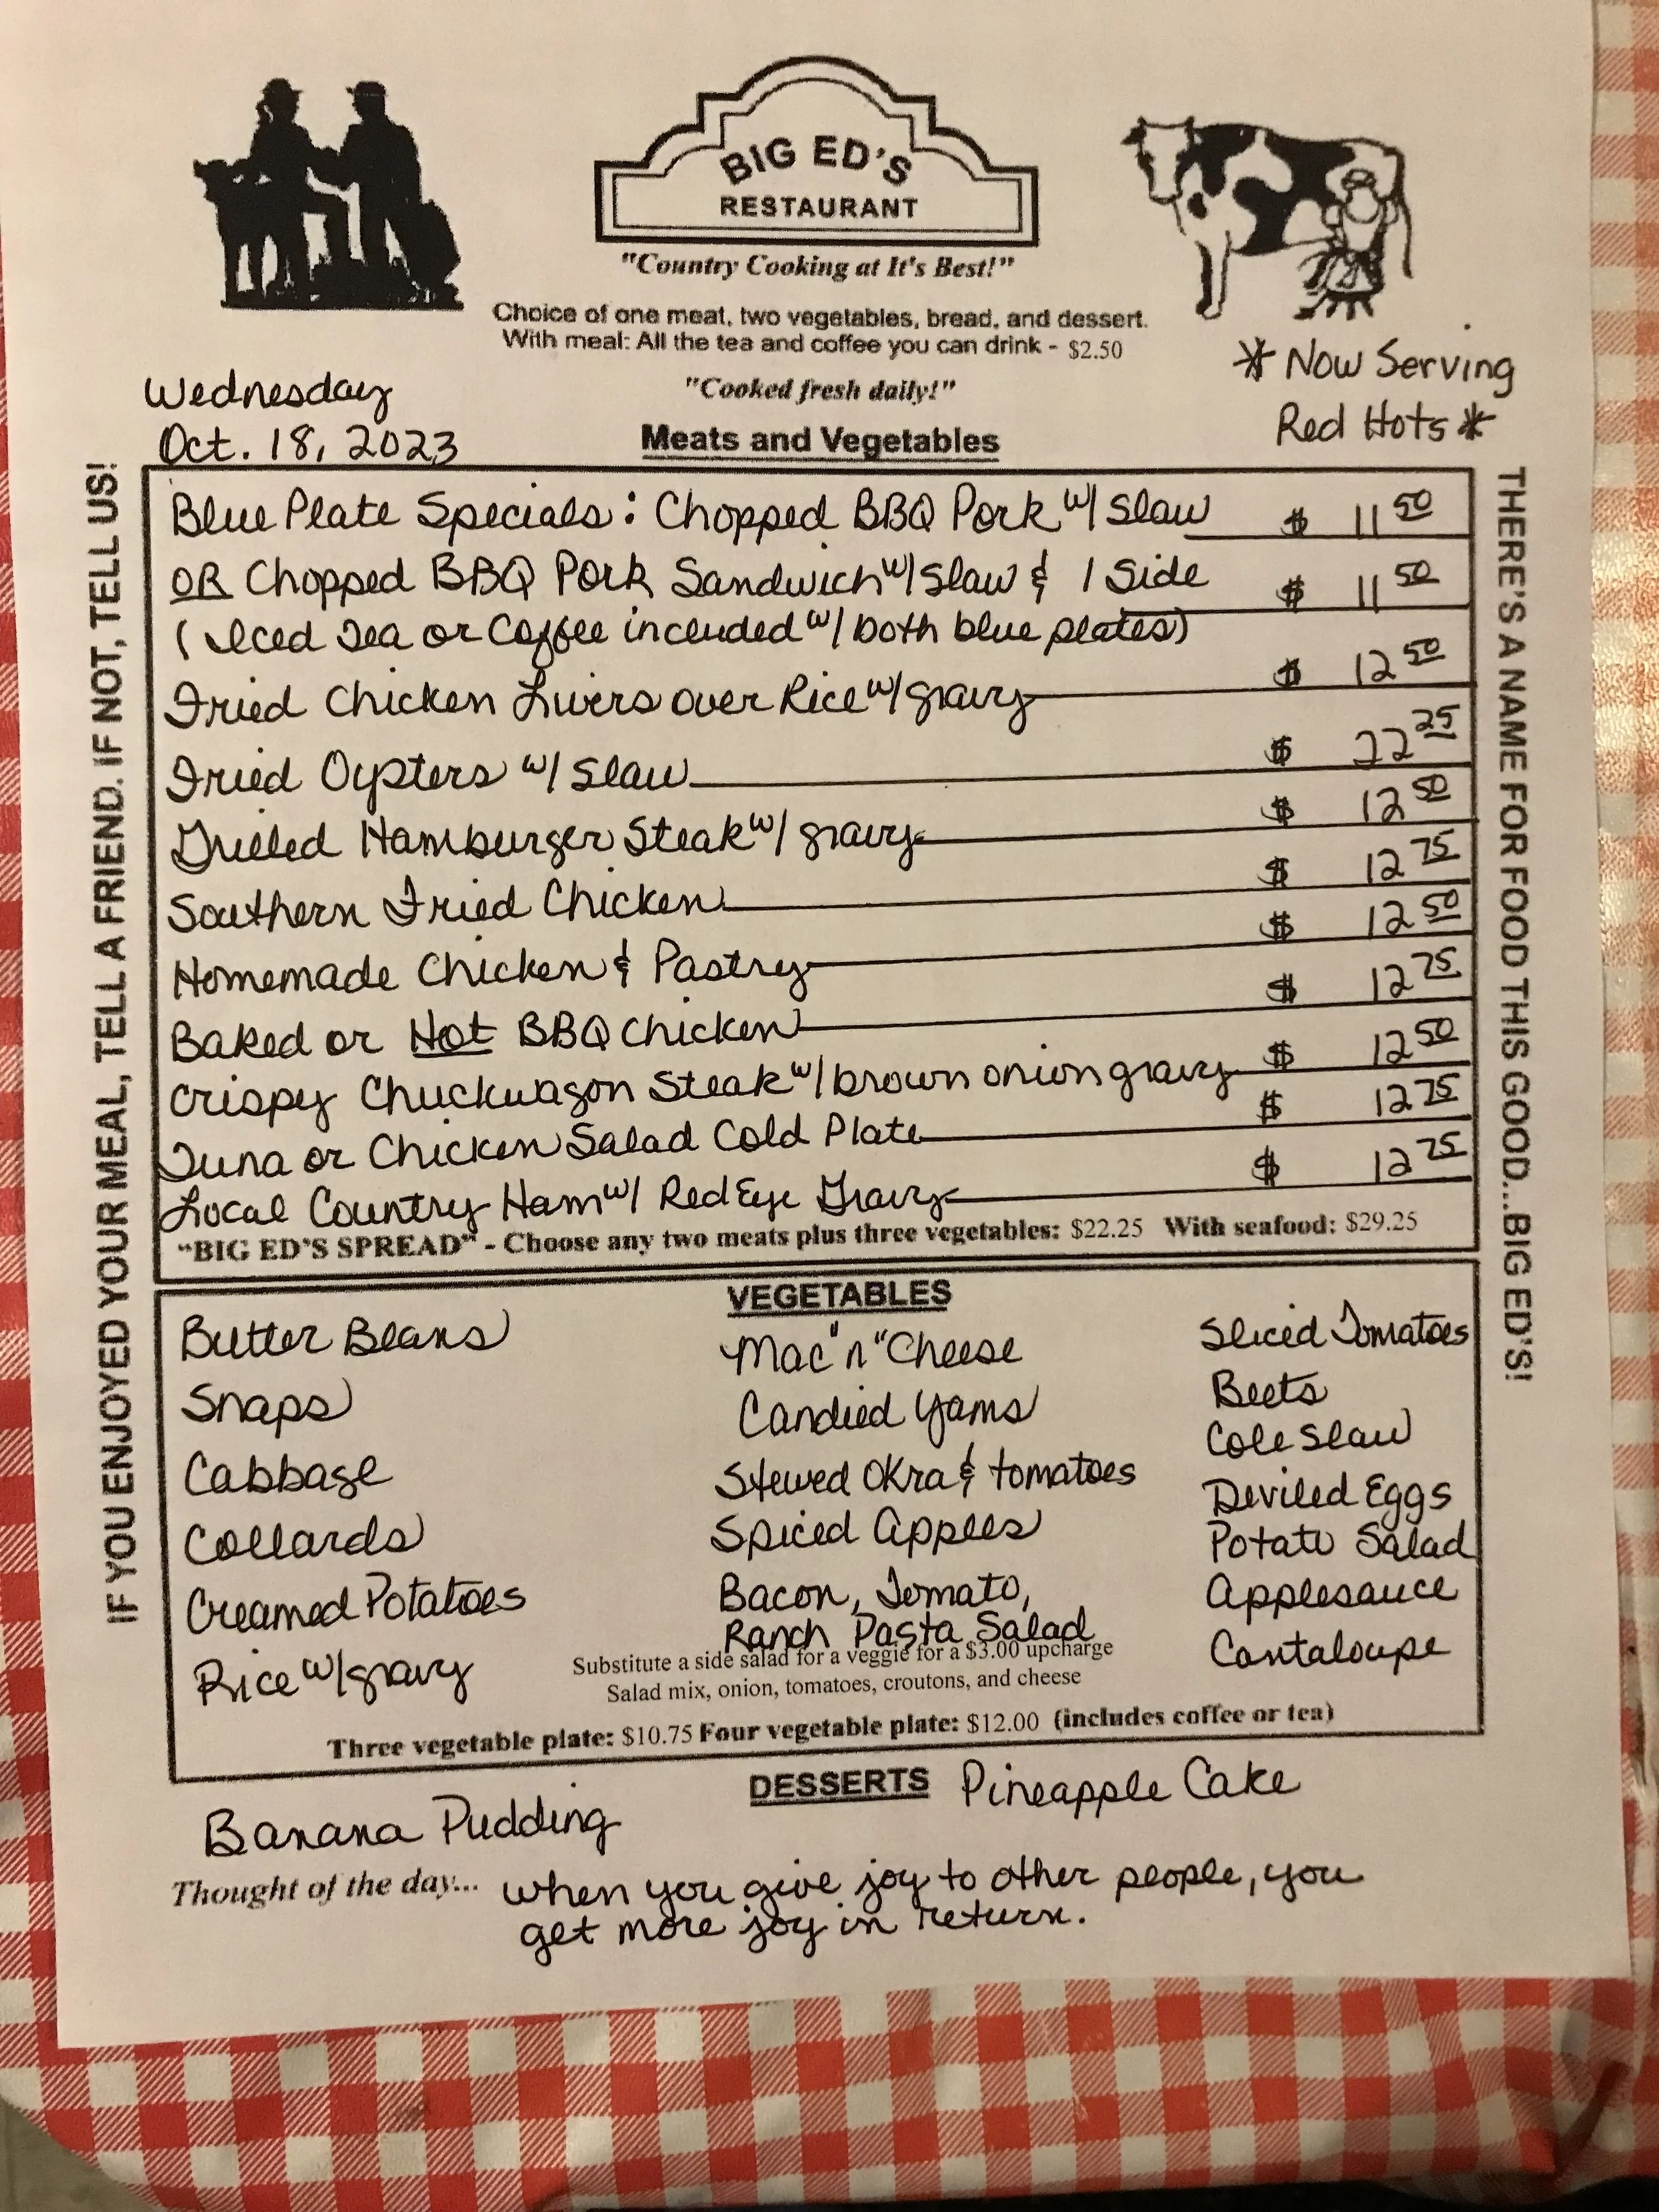 BIG ED'S
RESTAURANT
"Country Cooking at It's Best!"
Choice of one meat, two vegetables, bread, and dessert.
With meal: All the tea and coffee you can drink - $2.50
"Cooked fresh daily!"
* Now Serving
Red Hots *
Wednesday
Oct. 18, 2023
Meats and Vegetables
IF YOU ENJOYED YOUR MEAL, TELL A FRIEND. IF NOT, TELL US!
Blue Plate Specials: Chopped BBQ Pork w/ Slaw $ 11 50
OR Chopped BBQ Pork Sandwich w/ Slaw & 1 Side $ 11 50
(Iced Tea or Coffee included w/ both blue plates)
Fried Chicken Livers over Rice w/ gravy $ 12 50
Fried Oysters w/ Slaw $ 22 25
Grilled Hamburger Steak w/ gravy $ 12 50
Southern Fried Chicken $ 12 75
Homemade Chicken & Pastry $ 12 50
Baked or Hot BBQ Chicken $ 12 75
Crispy Chuckwagon Steak w/ brown onion gravy $ 12 50
Tuna or Chicken Salad Cold Plate $ 12 75
Local Country Ham w/ Red Eye Gravy $ 12 75
"BIG ED'S SPREAD" - Choose any two meats plus three vegetables: $22.25 With seafood: $29.25
THERE'S A NAME FOR FOOD THIS GOOD...BIG ED'S!
VEGETABLES
Butter Beans
Snaps
Cabbage
Collards
Creamed Potatoes
Rice w/ gravy
Mac "n" Cheese
Candied Yams
Stewed Okra & tomatoes
Spiced Apples
Bacon, Tomato,
Ranch Pasta Salad
Sliced Tomatoes
Beets
Cole Slaw
Deviled Eggs
Potato Salad
Applesauce
Cantaloupe
Substitute a side salad for a veggie for a $3.00 upcharge
Salad mix, onion, tomatoes, croutons, and cheese
Three vegetable plate: $10.75 Four vegetable plate: $12.00 (includes coffee or tea)
DESSERTS
Banana Pudding
Pineapple Cake
Thought of the day... when you give joy to other people, you
get more joy in return.